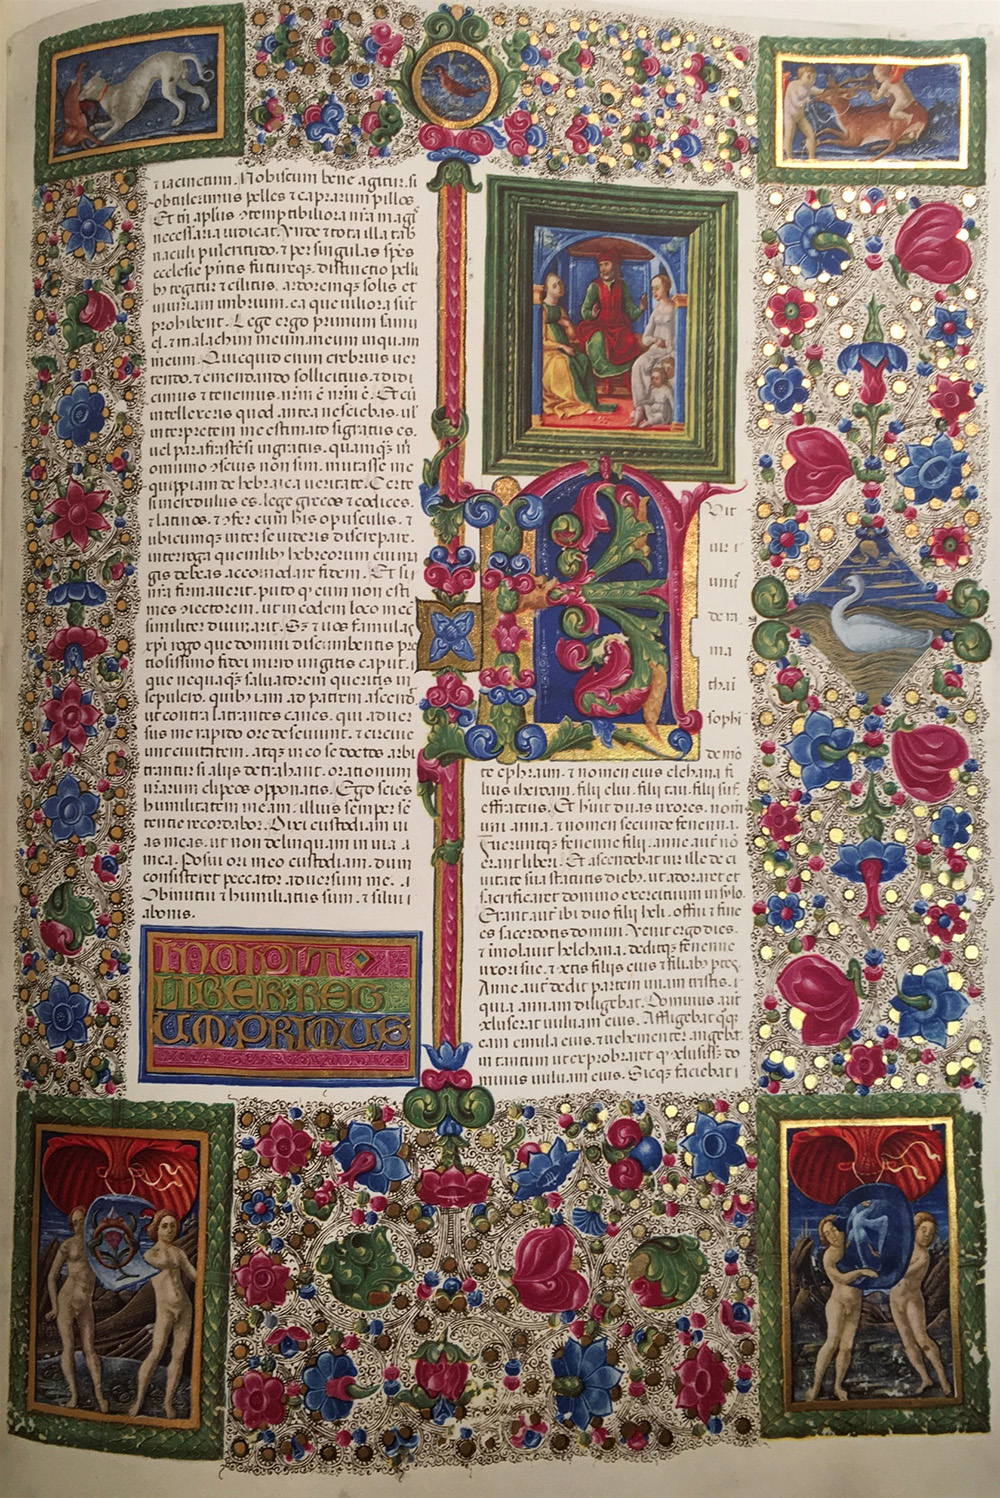 ⁊ iacinctum. Nobiscum bene agitur si
obtulerimus pelles ⁊ caprarum pillos.
necessaria iudicat. Unde ⁊ tota illa tab
naculi pulcritudo. ⁊ per singulas spēs
ecclesie
tegitur ⁊ cilitiis. ardoremqȝ solis et
iniuriam imbrium. ea que uiliora sūt
prohibent. Lege ergo primum samu
el. ⁊ malachim meum. meum inquam
meum. Quicquid enim crebrius uer
tendo. ⁊ emendando sollicitius. ⁊ didi
cimus ⁊ tenemus. nr̄m ē nr̄m ē. Et cū
intellexeris quod antea nesciebas. ul̄
interpretem me estimato si gratus es.
uel parafrastē si ingratus. quamqȝ m̄
omnino ↄscius non sim. mutasse me
quippiam de hebraica ueritate. Certe
si incredulus es. lege grecos ⁊ codices.
⁊ latinos. ⁊ ↄfer cum his opusculis. ⁊
ubicumqȝ inter se uideris discrepare.
interroga quemlibȝ hebreorum cui ma
gis debeas accomodare fidem. Et si
nr̄a firmauerit. puto qȝ eum non esti
mes ↄiectorem. ut in eodem loco mec̄
similiter diuinarit. Sȝ ⁊ uos famulas
xp̄i rogo que domini discumbentis pre
tiosissimo fidei mirro ungitis caput.
que nequaqȝ saluatorem queritis in
sepulcro. quibȝ iam ad patrem ascend̄
ut contra latrantes canes. qui aduer
sus me rapido ore deseuiunt. ⁊ circue
unt ciuitatem. atqȝ in eo se doctos arbi
trantur si aliis detrahant. orationum
urarum clipeos opponatis. Ego sciēs
humilitatem meam. illius semper sē
tentie recordabor. Dixi custodiam ui
as meas. ut non delinquam in lingua
mea. Posui ori meo custodiam. dum
consisteret peccator aduersum me.
Obmutui ⁊ humiliatus sum. ⁊ silui
abonis.
INCIPIT
LIBER REG
UM PRIMUS
Uit
uir
unus
de ra
ma
thai
sophi
de mō
te ephraim. ⁊ nomen eius elchana fi
lius ieroam. filii eliu. filii tau. filii suf.
effrateus. Et h'uit duas uxores. nom
uni anna. ⁊ nomen secunde fenenna.
Fueruntqȝ fenenne filii. anne aut̄ nō
erant liberi. Et ascendebat uir ille de ci
uitate sua statutis diebȝ. ut adoraret et
sacrificaret domino exercituum in sylo.
Erant aut̄ ibi duo filii heli. offni ⁊ fine
es sacerdotis domini. Uenit ergo dies.
⁊ imolauit helchana. deditqȝ fenenne
uxori sue. ⁊ ↄctis filiis eius ⁊ filiabȝ ptes.
Anne aut̄ dedit partem unam tristis.
quia annam diligebat. Dominus aut̄
ↄcluserat uuluam eius. Affligebat qȝ
eam emula eius. ⁊ uehementer angebat
in tantum ut exprobraret qȝ ↄclusisset do
minus uuluam eius. Sicqȝ faciebat